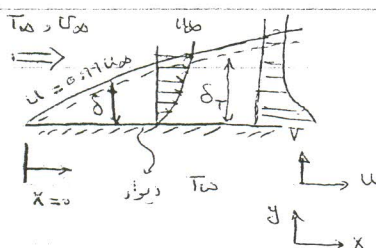 T∞ , U∞
U∞
u = 0.99 U∞
δ
δT
V
x = 0
دیوار
Tw
u
y
x